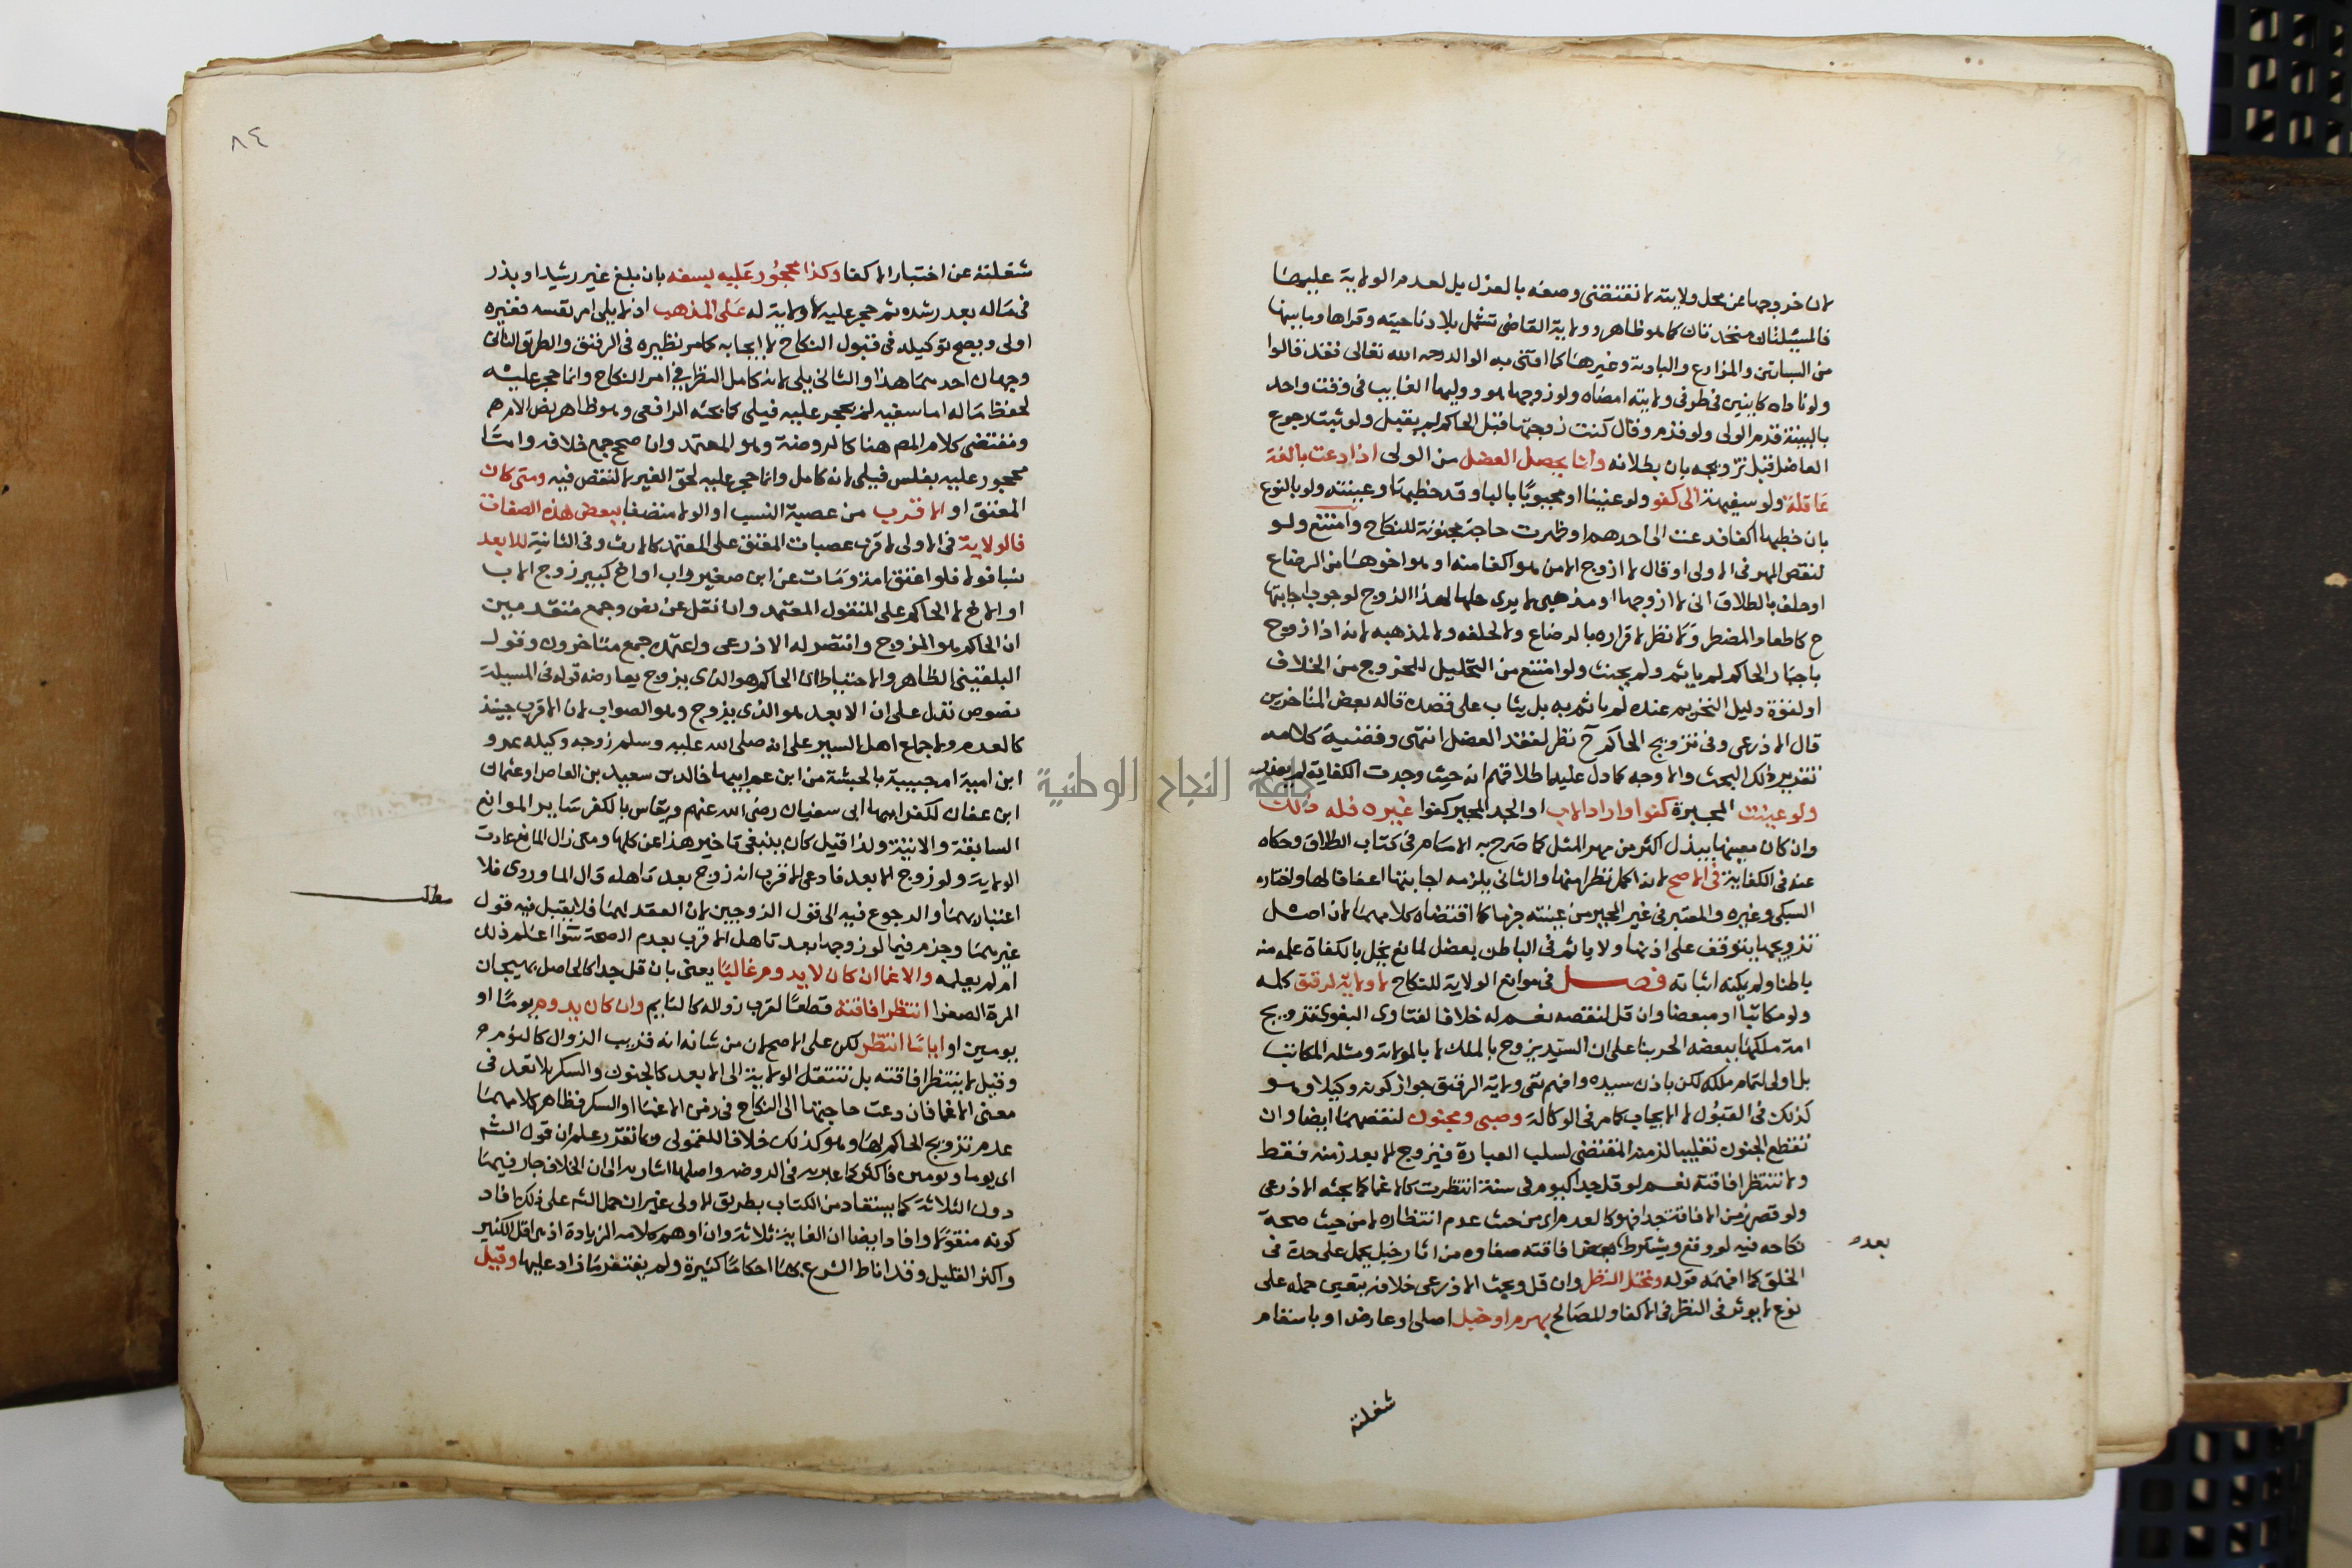 لان خروجها عن محل ولايته لا نقتضى وصفه بالعزل بل لعدم الولاية عليهما
فالمسئلتان متحدتان كما هو ظاهر وولاية القاضى تشمل بلاد ناحيته وقراها وما بينها
من البساتين والمزارع والبادية وغيرهما كما افتى به الوالد رحمه الله تعالى فقد قالوا
ولو ناداه كاينين فى طرفى ولايته امضاه ولو زوجها هو ووليها الغايب فى وقت واحد
بالبينة قدم الولى ولو قدم وقال كنت زوجتها قبل الحاكم لم يقبل ولو ثبت رجوع
العاضل قبل تزويجه بان بطلانه وانما يحصل العضل من الولى اذا دعت بالغة
عاقلة ولو سفيهة الى كفو ولو عنينا او مجبوبا بالبا وقد خطبها وعينته ولو بالنوع
بان خطبها اكفا فدعت الى احدهم او ظهرت حاجة مجنونة للنكاح وامتنع ولو
لنقص المهر فى الاولى او قال لا ازوج الا من هو اكفا منه او هو اخوها من الرضاع
او حلف بالطلاق انى لا ازوجها او مذهبى لا يرى حلها لهذا الزوج لوجوب اجابتها
ح كاطعام المضطر ولا نظر لاقراره بالرضاع ولا لحلفه ولا لمذهبه لانه اذا زوج
باجبار الحاكم لم ياثم ولم يحنث ولو امتنع من التحليل للخروج من الخلاف
او لقوة دليل التحريم عنده لم ياثم به بل يثاب على قصده قاله بعض المتاخرين
قال الاذرعى وفى تزويج الحاكم ح نظر لفقد العضل انتهى وقضية كلامه
تقرير ذلك البحث والاوجه كما دل عليها طلاقهم انه حيث وجدت الكفاية لم يعذر
ولو عينت المجبرة كفوا واراد الاب او الجد المجبر كفوا غيره فله ذلك
وان كان معينها يبذل اكثر من مهر المثل كما صرح به الامام فى كتاب الطلاق وحكاه
عنه فى الكفاية فى الاصح لانه اكمل نظرا منها والثانى يلزمه اجابتها اعفافا لها واختاره
السبكى وغيره والمعتبر فى غير المجبر من عينته جزما كما اقتضاه كلامهما لان اصل
تزويجها يتوقف على اذنها ولا ياثم فى الباطن بعضل لمانع يخل بالكفاة علمه منه
باطنا ولم يمكنه اثباته فصل فى موانع الولاية للنكاح لا ولاية لرقيق كله
ولو مكاتبا او مبعضا وان قل لنقصه نعم له خلافا لفتاوى البغوى تزويج
امة ملكها ببعضه الحر بنا على ان السيد يزوج بالملك لا بالولاية ومثله المكاتب
بل اولى لتمام ملكه لكن باذن سيده وافهم نفى ولاية الرقيق جواز كونه وكيلا وهو
كذلك فى القبول لا الايجاب كما مر فى الوكالة وصبى ومجنون لنقصهما ايضا وان
تقطع الجنون تغليبا لزمنه المقتضى لسلب العبارة فيزوج الابعد زمنه فقط
ولا تنتظر افاقته نعم لو قل جدا كيوم فى سنة انتظرت كالاغما كما بحثه الاذرعى
ولو قصر زمن الافاقة جدا فهو كالعدم اى من حيث عدم انتظاره لا من حيث صحة
نكاحه فيه لو وقع ويشترط بعد افاقته صفاوه من اثار خبل يحمل على حدة فى
بعد
الخلق كما افهمه قوله ومختل النظر وان قل وبحث الاذرعى خلافه يتعين حمله على
نوع لا يوثر فى النظر فى الاكفا والمصالح بهرم او خبل اصلى او عارض او باسقام
شغلته
٨٤
شغلته عن اختبار الاكفا وكذا محجور عليه بسفه بان بلغ غير رشيد او بذر
فى ماله بعد رشده ثم حجر عليه لا ولاية له على المذهب اذ لا يلى امر نفسه فغيره
اولى ويصح توكيله فى قبول النكاح لا ايجابه كما مر نظيره فى الرقيق والطريق الثانى
وجهان احدهما هذا والثانى يلى لانه كامل النظر فى امر النكاح وانما حجر عليه
لحفظ ماله اما سفيه لم يحجر عليه فيلى كما بحثه الرافعى وهو ظاهر نص الام
ومقتضى كلام المص هنا كالروضة وهو المعتمد وان صحح جمع خلافه واما
محجور عليه بفلس فيلى لانه كامل وانما حجر عليه لحق الغير لا لنقص فيه ومتى كان
المعتق او الاقرب من عصبة النسب او الولا متصفا ببعض هذه الصفات
فالولاية فى الاولى لاقرب عصبات المعتق على المعتمد كالارث وفى الثانية للابعد
نسبا فولا فلو اعتق امة ومات عن ابن صغير واب او اخ كبير زوج الاب
او الاخ لا الحاكم على المنقول المعتمد وان نقل عن نص وجمع متقدمين
ان الحاكم هو المزوج وانتصر له الاذرعى واعتمده جمع متاخرون وقول
البلقينى الظاهر والاحتياط ان الحاكم هو الذى يزوج يعارضه قوله فى المسيلة
نصوص تدل على ان الابعد هو الذى يزوج وهو الصواب لان الاقرب حينئذ
كالعدم ولاجماع اهل السير على انه صلى الله عليه وسلم زوجه وكيله عمرو
ابن امية ام حبيبة بالحبشة من ابن عم ابيها خالد بن سعيد بن العاص او عثمان
ابن عفان لكفر ابيها ابى سفيان رضى الله عنهم ويقاس بالكفر ساير الموانع
السابقة والاتية ولذا قيل كان ينبغى تاخير هذا عن كلها ومتى زال المانع عادت
الولاية ولو زوج الابعد فادعى الاقرب انه زوج بعد تاهله قال الماوردى فلا
مطلب
اعتبار بهما والرجوع فيه الى قول الزوجين لان العقد لهما فلا يقبل فيه قول
غيرهما وجزم فيما لو زوجها بعد تاهل الاقرب بعدم الصحة سواا علم ذلك
ام لم يعلمه والاغما ان كان لا يدوم غالبا يعنى بان قل جدا كالحاصل بهيجان
المرة الصفرا انتظر افاقته قطعا لقرب زواله كالنايم وان كان يدوم يوما او
يومين او اياما انتظر لكن على الاصح لان من شانه انه قريب الزوال كالنوم
وقيل لا ينتظر افاقته بل تنتقل الولاية الى الابعد كالجنون والسكر بلا تعد فى
معنى الاغما فان دعت حاجتها الى النكاح فى زمن الاغما او السكر فظاهر كلامهما
عدم تزويج الحاكم لها وهو كذلك خلافا للمتولى وبما تقرر علم ان قول الشم
اى يوما ويومين فاكثر كما عبر به فى الروضة واصلها اشار به الى ان الخلاف جار فيما
دون الثلاثة كما يستفاد من الكتاب بطريق الاولى غير ان حمل الشم على ذلك افاد
كونه منقولا وافاد ايضا ان الغاية ثلاثة وان اوهم كلامه الزيادة اذ هى اقل الكثير
واكثر القليل وقد اناط الشرع بها احكاما كثيرة ولم يغتفر ما زاد عليها وقيل
جامعة النجاح الوطنية